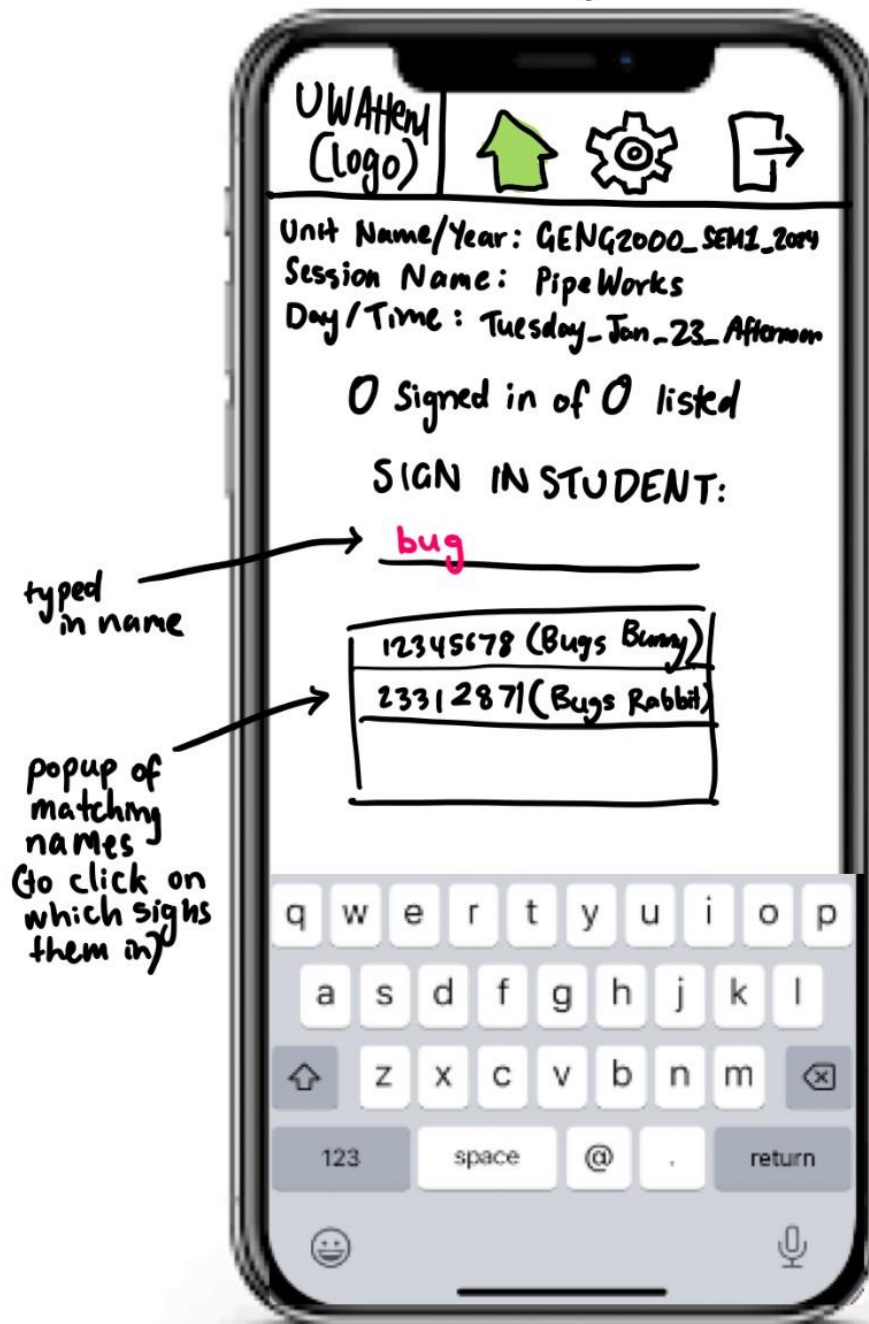 UWAttend
(logo)
Unit Name/Year: GENG2000_SEM1_2024
Session Name: PipeWorks
Day/Time: Tuesday_Jan_23_Afternoon
0 signed in of 0 listed
SIGN IN STUDENT:
bug
typed
in name
12345678 (Bugs Bunny)
23312871 (Bugs Rabbit)
popup of
matching
names
(to click on
which signs
them in)
q w e r t y u i o p
a s d f g h j k l
z x c v b n m
123 space @ . return